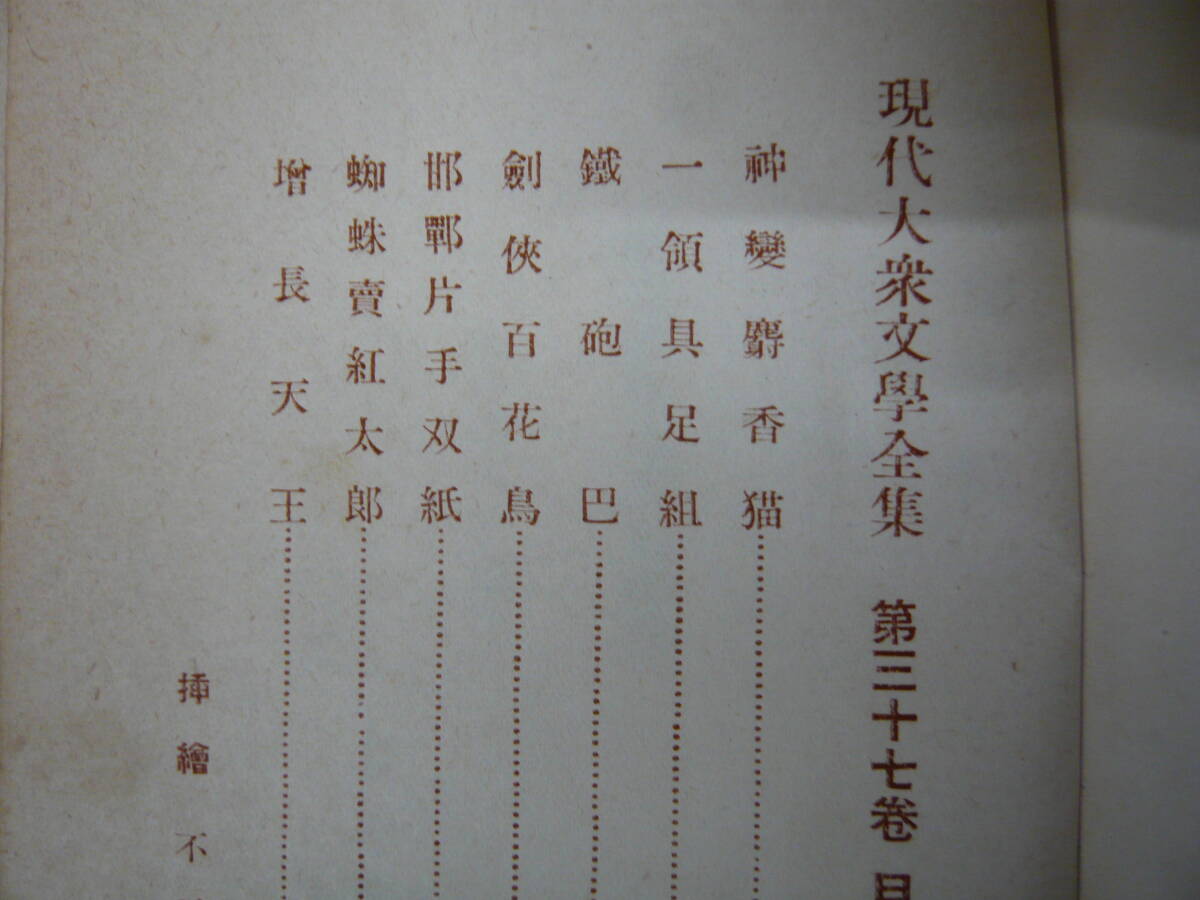 現代大衆文學全集 第三十七卷
神變麝香猫
一領具足組
鐵砲巴
劍俠百花鳥
邯鄲片手双紙
蜘蛛賣紅太郎
增長天王
挿繪 不